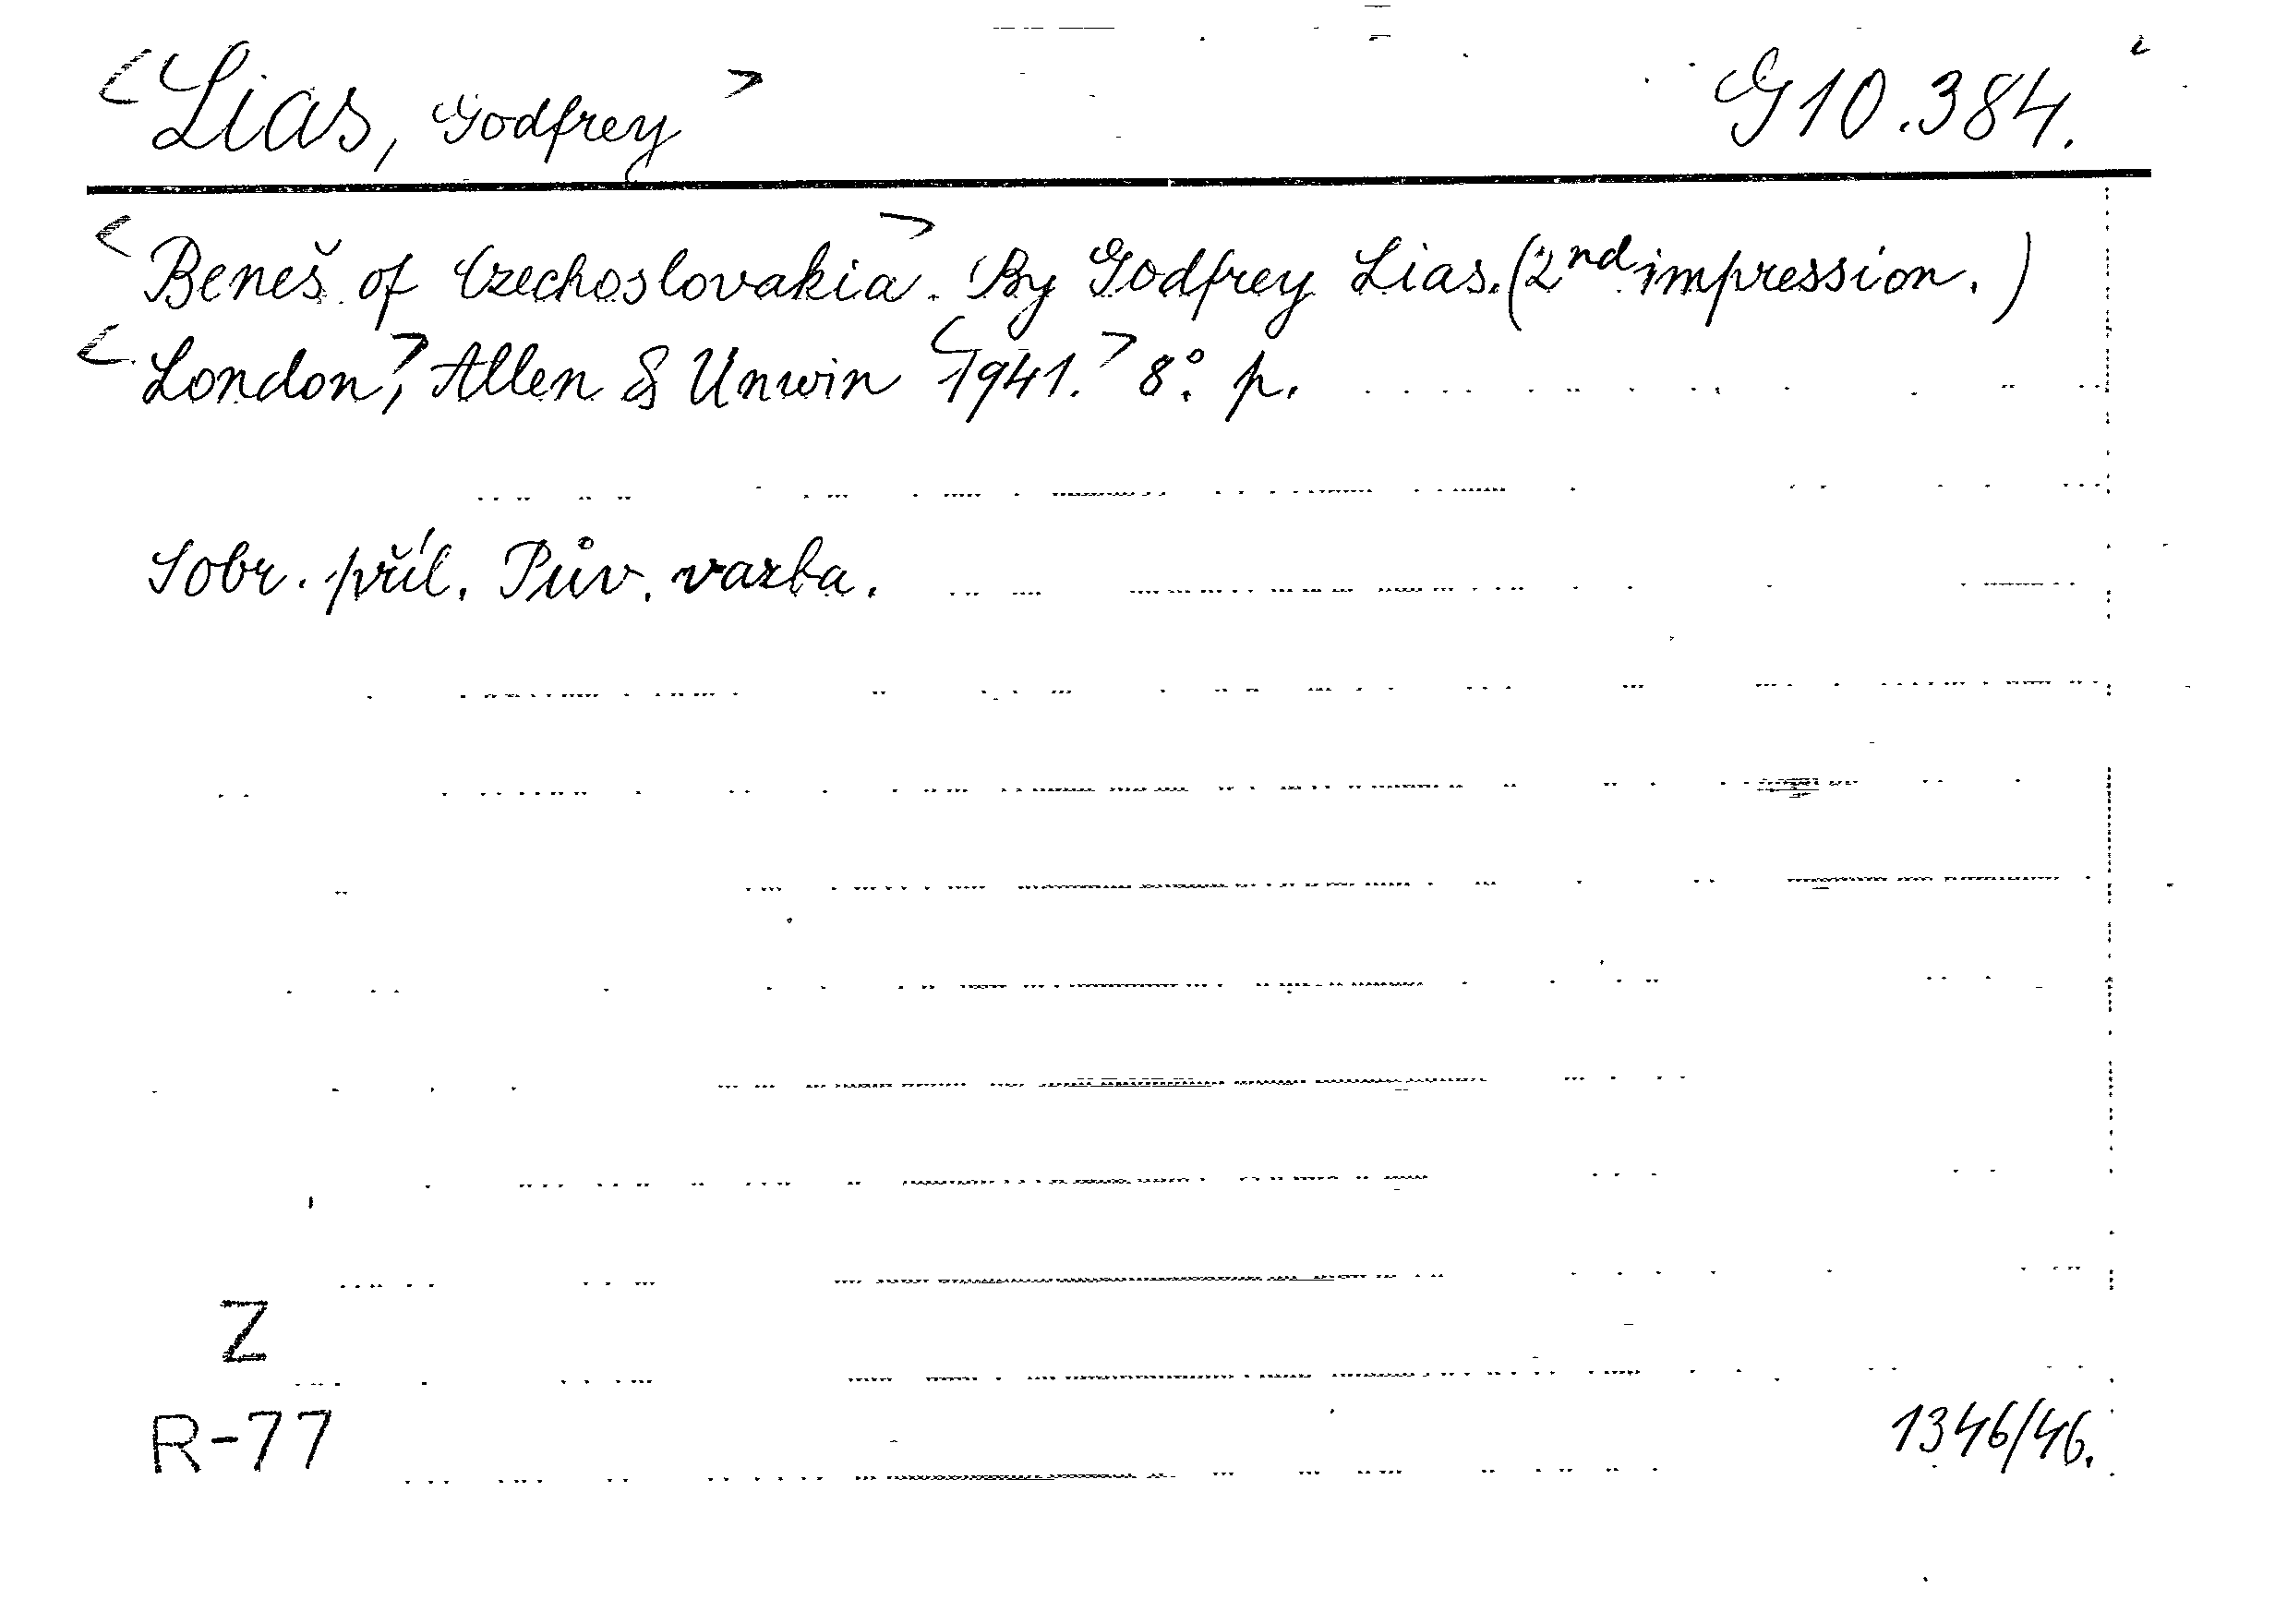 <Lias, Godfrey> G10.384.
<Beneš of Czechoslovakia.> By Godfrey Lias. (2nd impression.)
<London,> Allen & Unwin <1941.> 8°. p.
Sobr. příl. Pův. vazba.
Z
R-77 1346/46.